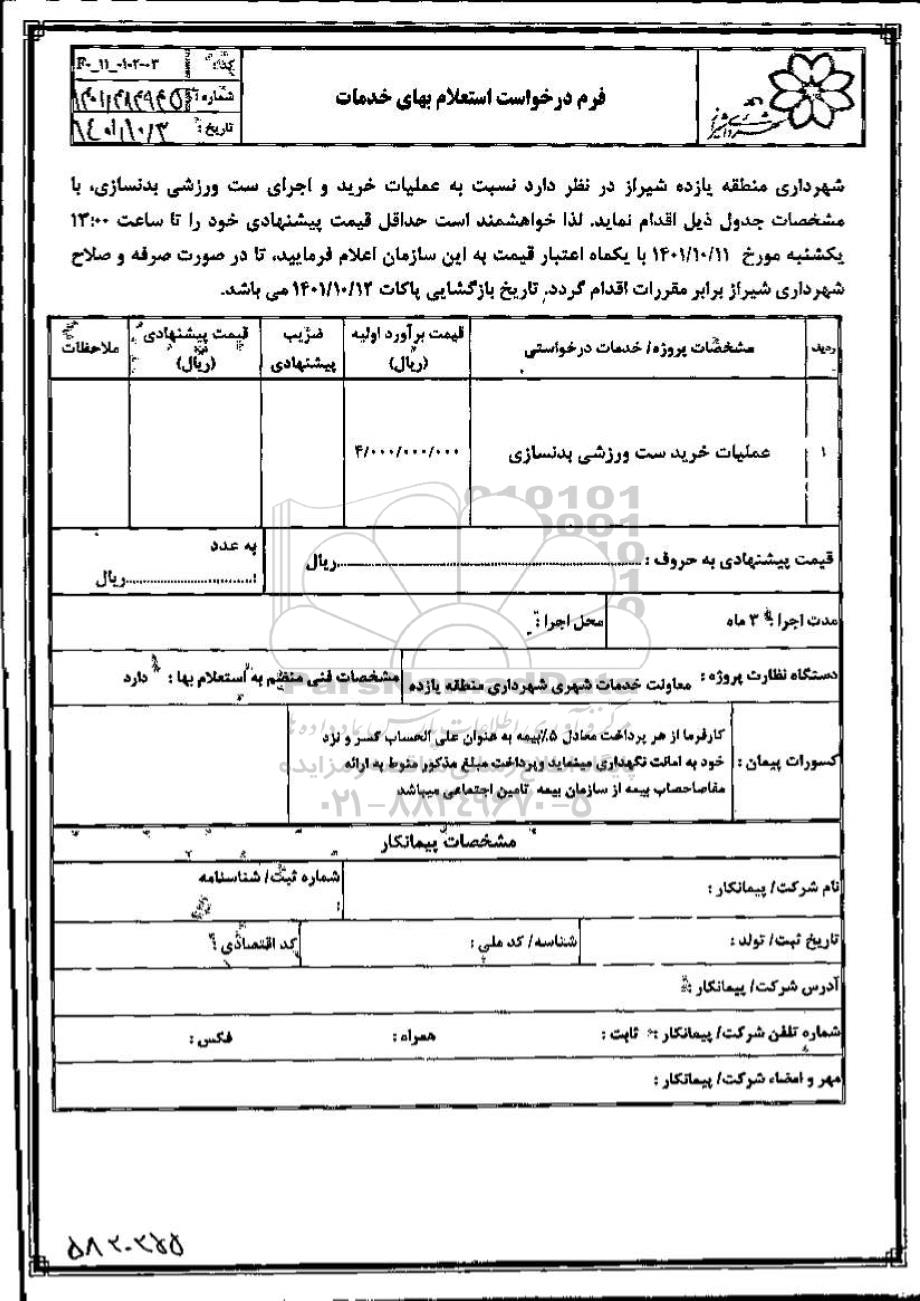 کد: F-_11_01-02-03
شماره:
تاریخ: ۱۴۰۱/۱۰/۳
فرم درخواست استعلام بهای خدمات
شهرداری شیراز
شهرداری منطقه یازده شیراز در نظر دارد نسبت به عملیات خرید و اجرای ست ورزشی بدنسازی، با
مشخصات جدول ذیل اقدام نماید. لذا خواهشمند است حداقل قیمت پیشنهادی خود را تا ساعت ۱۳:۰۰
یکشنبه مورخ ۱۴۰۱/۱۰/۱۱ با یکماه اعتبار قیمت به این سازمان اعلام فرمایید، تا در صورت صرفه و صلاح
شهرداری شیراز برابر مقررات اقدام گردد. تاریخ بازگشایی پاکات ۱۴۰۱/۱۰/۱۲ می باشد.
ردیف
مشخصات پروژه/ خدمات درخواستی
قیمت برآورد اولیه
(ریال)
ضریب
پیشنهادی
قیمت پیشنهادی
(ریال)
ملاحظات
۱
عملیات خرید ست ورزشی بدنسازی
۴/۰۰۰/۰۰۰/۰۰۰
قیمت پیشنهادی به حروف : ............ریال
به عدد
:............ریال
مدت اجرا : ۳ ماه
محل اجرا :
دستگاه نظارت پروژه : معاونت خدمات شهری شهرداری منطقه یازده
مشخصات فنی منضم به استعلام بها : دارد
کسورات پیمان :
کارفرما از هر پرداخت معادل ۵٪بیمه به عنوان علی الحساب کسر و نزد
خود به امانت نگهداری مینماید وپرداخت مبلغ مذکور منوط به ارائه
مفاصاحصاب بیمه از سازمان بیمه تامین اجتماعی میباشد
مشخصات پیمانکار
نام شرکت/ پیمانکار :
شماره ثبت/ شناسنامه
:
تاریخ ثبت/ تولد :
شناسه/ کد ملی :
کد اقتصادی :
آدرس شرکت/ پیمانکار :
شماره تلفن شرکت/ پیمانکار : ثابت :
همراه :
فکس :
مهر و امضاء شرکت/ پیمانکار :
ParsNamadData
۰۲۱-۸۸۳۴۹۶۷۰-۵